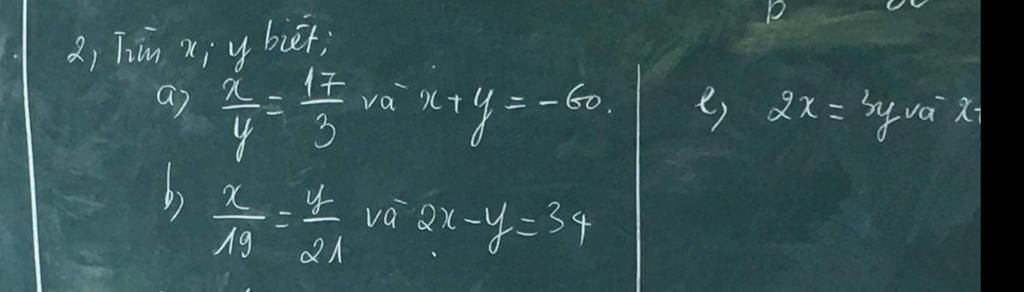 2, Tìm x; y biết;
a) x/y = 17/3 và x + y = -60.
b) x/19 = y/21 và 2x - y = 34
e, 2x = 3y và x